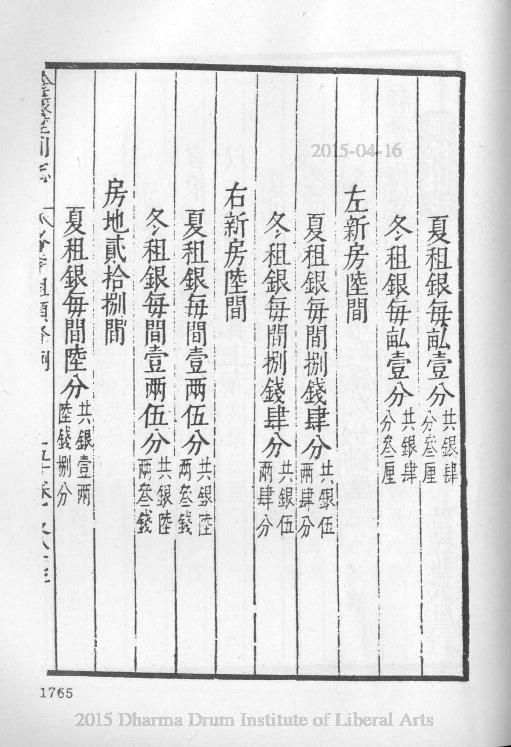 夏租銀每畝壹分共銀肆分叁厘
冬租銀每畝壹分共銀肆分叁厘
左新房陸間
夏租銀每間捌錢肆分共銀伍兩肆分
冬租銀每間捌錢肆分共銀伍兩肆分
右新房陸間
夏租銀每間壹兩伍分共銀陸兩叁錢
冬租銀每間壹兩伍分共銀陸兩叁錢
房地貳拾捌間
夏租銀每間陸分共銀壹兩陸錢捌分
1765
2015-04-16
2015 Dharma Drum Institute of Liberal Arts